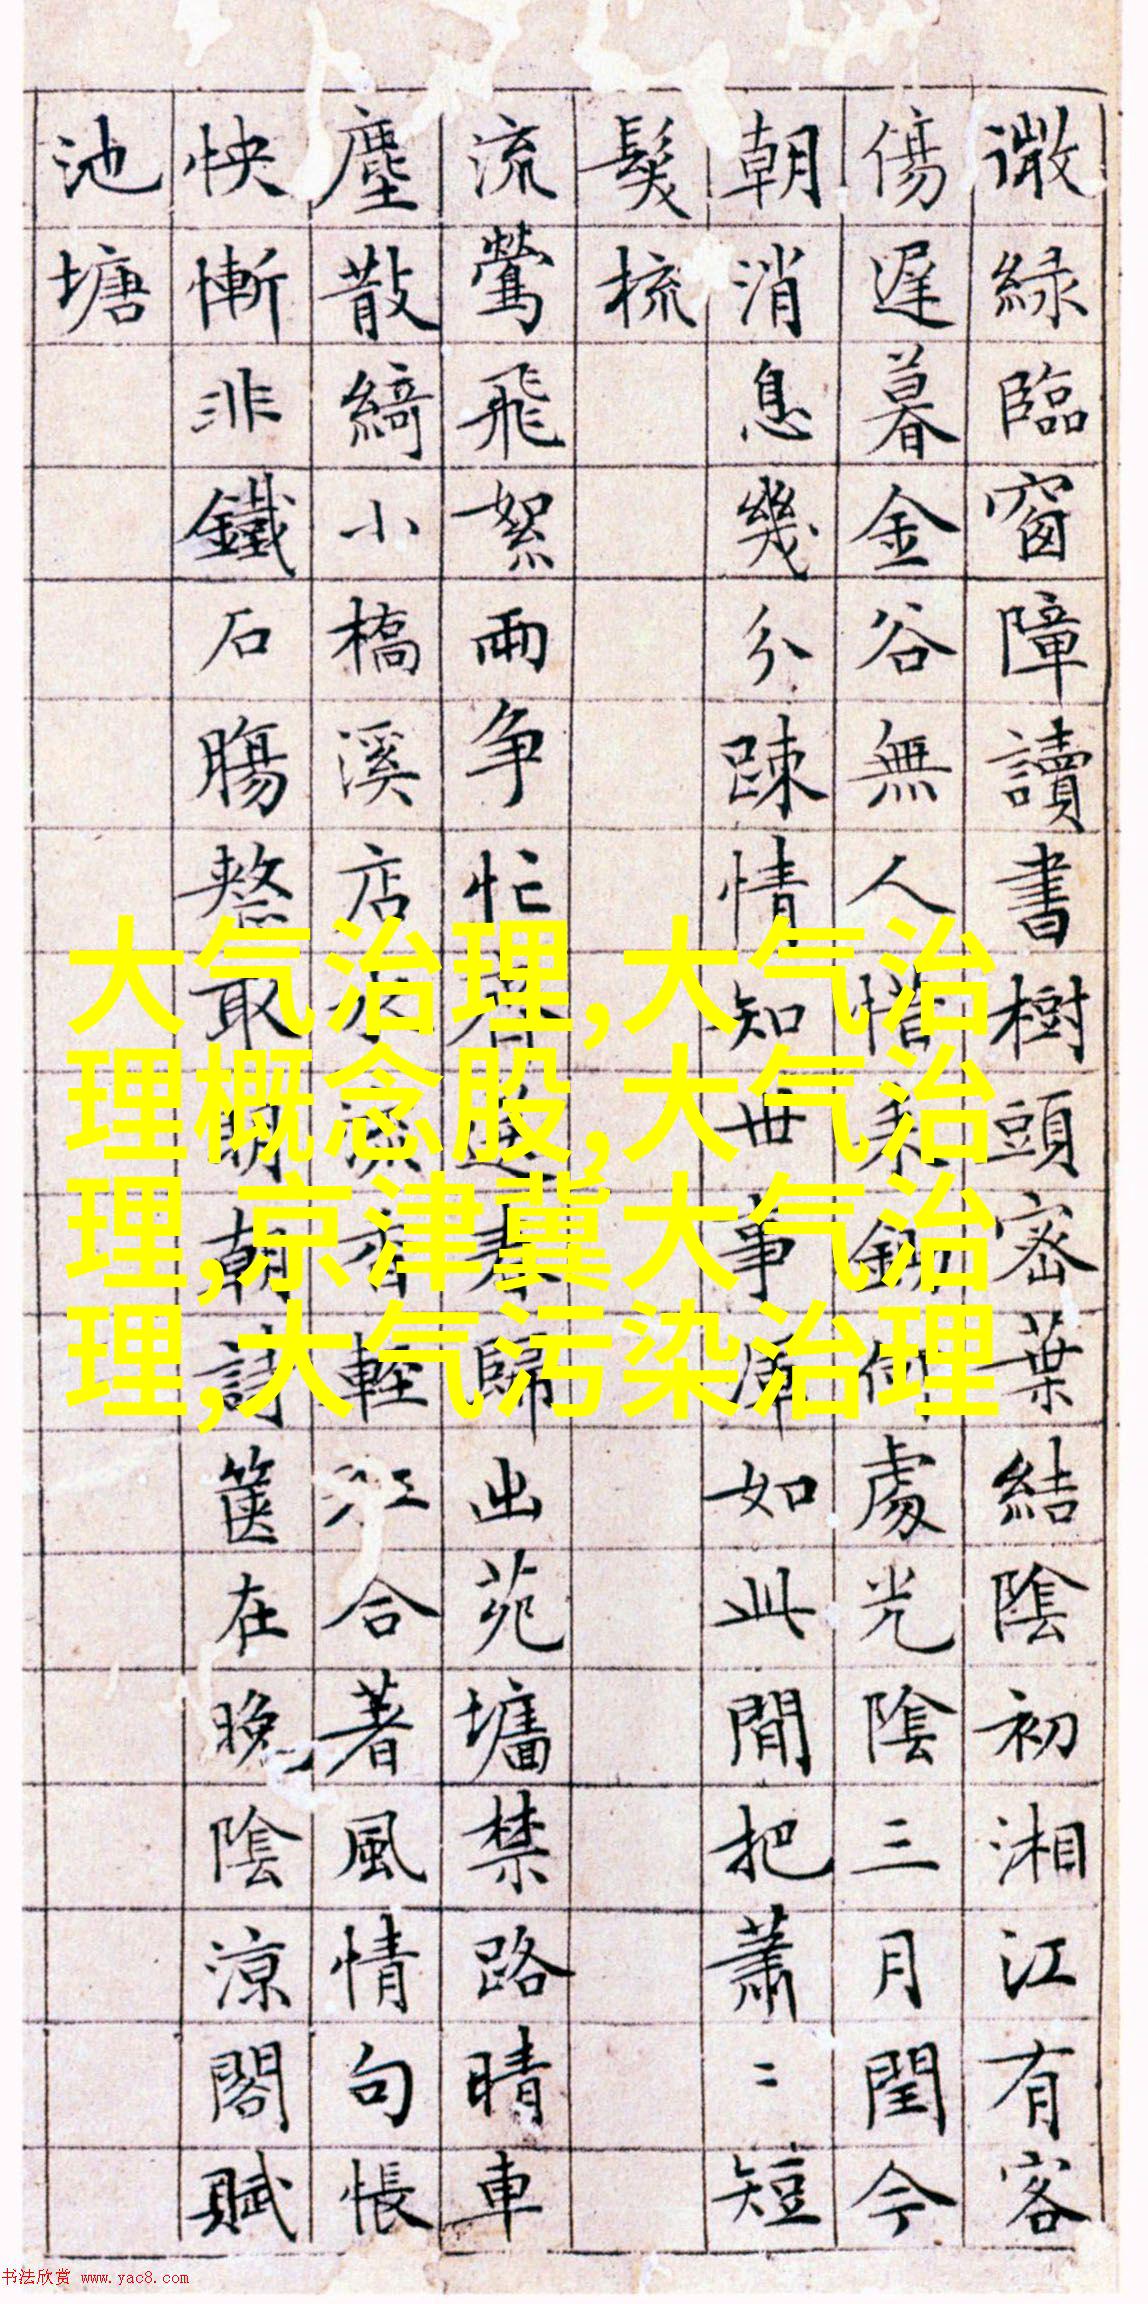 微綠臨窗障讀書樹頭密葉結陰初湘江有客
傷遲暮金谷無人惜處光陰三月閏今
朝消息幾分踈情知世事如此間把蕭〻短
鬢梳
流鶯飛絮兩争忙春歸出苑墻禁路晴車
塵散綺小橋溪店水香輕江合著風情句悵
怏慚非鐵石腸愁朝詩篋在晚陰涼閣賦
池塘
大气治理,大气治
理概念股,大气治
理,京津冀大气治
理,大气污染治理
书法欣赏 www.yac8.com